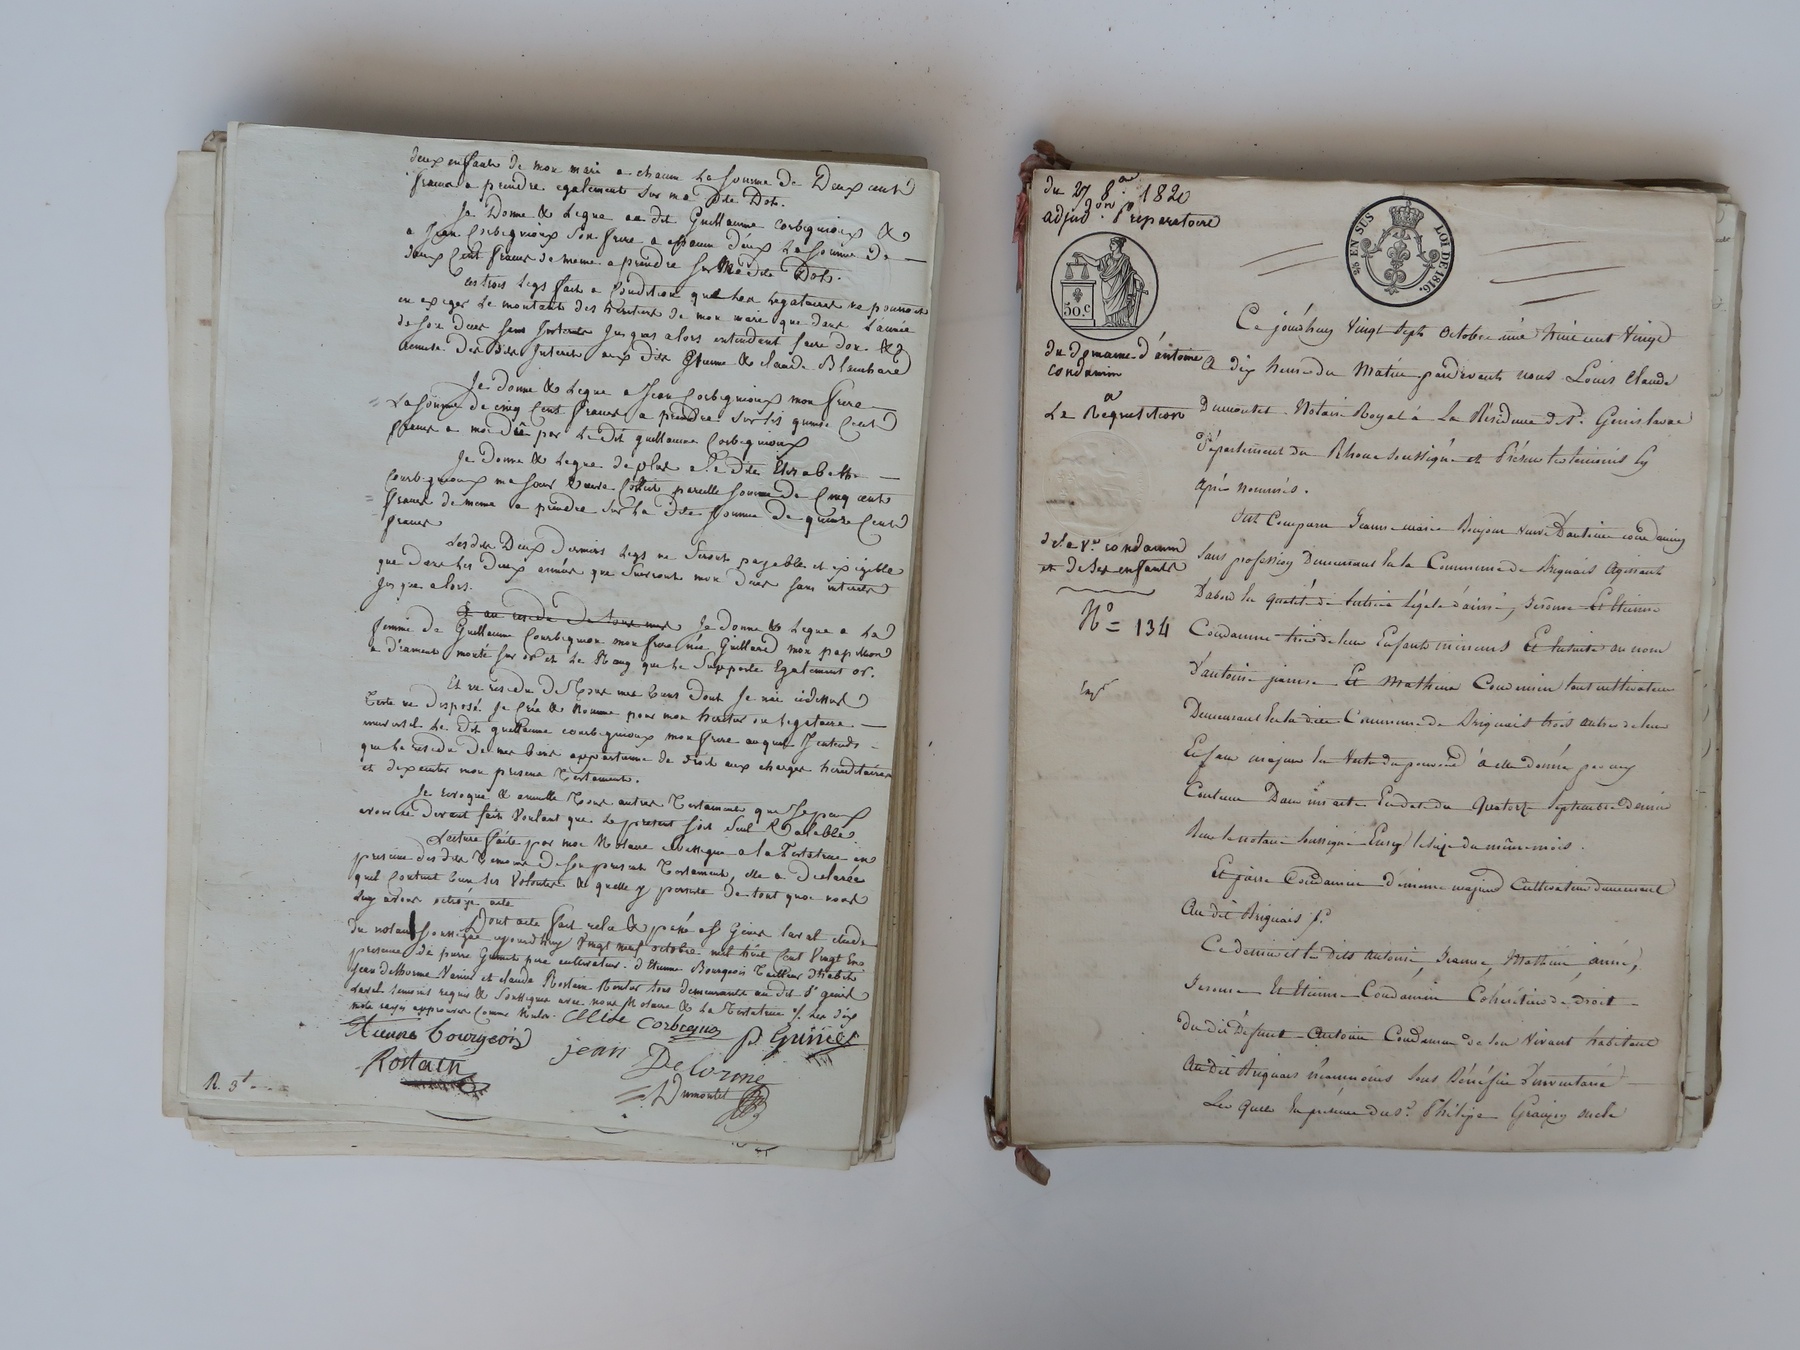 deux enfants de mon mari a chacun La somme de Deux cents
francs a prendre egalement sur ma Dte Dot.
Je Donne & Legue au dit Guillaume Corbignioux &
a Jean Corbignioux son frere a chacun d'eux La somme de
deux Cent francs de meme a prendre sur Ma dite Dot.
ces trois Legs fait a Condition que Les Legataires ne pourront
en exiger Le montant des heritiers de mon mari que dans L'année
de son deces sans Interets Jusques alors entendant faire don &
remise Des dits Interets aux dits Etienne & claude Blanchard
Je donne & Legue a Jean Corbignioux mon frere
La somme de cinq Cent francs a prendre sur Les quinze Cent
francs a moi dûs par Le dit guillaume Corbignioux
Je Donne & Legue de plus a La dite Elisabeth
Corbignioux ma sœur pareille somme de Cinq cent
francs de meme a prendre sur La Dite somme de quinze Cent
francs
Lesdits Deux derniers Legs ne seront payable et exigible
que dans Les Deux années que suivront mon Deces sans interets
Jusque alors.
Je donne & Legue a La
femme de Guillaume Courbignioux mon frere née Guillard mon papillon
a diament monté sur or et Le Rang que Le Supporte Egalement or.
Et au residu de Tous mes biens dont Je nai cidessus
Testé ni Disposé Je Crée & Nomme pour mon heritier ou Legataire
universel Le Dit guillaume courbignioux mon frere auquel J'entends
que Le residu De mes biens appartienne de droit aux charges hereditaires
et dexecuter mon present Testament.
Je revoque & annulle Tous autres Testaments que Je peux
avoir cidevant faits Voulant que Le present soit Seul & Valable.
Lecture faite par moi Notaire a la Testatrice en
presence des dits Temoins de son present Testament, elle a declaree
quil Contient bien ses Volontés & quelle y persiste De tout quoi nous
Luy avons octroyé acte
Dont acte fait relu & passé a St Genis Laval etude
Du notaire soussigné aujourdhuy Vingt neuf octobre mil huit Cent Vingt En
presence de pierre Grimit pere cultivateur, d'Etienne Bourgeois Tailleur d'habits
Jean delhorme Vanier et claude Rostain Rentier tous demeurants au dit St genis
Laval temoins requis & Soussignés avec nous Notaire & La Testatrice
mots rayés approuvés Comme Nuls.
Etienne bourgeois
Elise Corbignioux
P Grimit
Rostain
jean
Delorme
Dumontet
R. 3t
du 27 8.re 1820
adjud.on Preparatoire
25 EN SUS
LOI DE 1816.
50.c
du Domaine d'antoine
Condamin
a
La Requisition
de la Ve. condamin
et de ses enfants
No = 134
Engé
Ce jourd'huy Vingt Sept Octobre mil huit cent Vingt
A dix heures du Matin pardevant nous Louis Claude
Dumontet Notaire Royal à La Résidence de St. Genis Laval
Département du Rhone soussigné et Présens les témoins Cy
Après nommés.
Est Comparu Jeanne marie Bonjour Veuve D'antoine condamin
Sans profession Demeurant En la Commune de Brignais Agissant
D'abord En qualité de tutrice légale d'ainé, Jerome Et Etienne
Condamin trois de leurs Enfants mineurs Et Ensuite au nom
d'antoine, jeanne Et Mathieu Condamin tous cultivateurs
Demeurant En la dite Commune de Brignais trois autres de leurs
Enfans majeurs En Vertu du pouvoir à elle donné par eux
Contenu Dans un acte En date du Quatorze Septembre Dernier
Reçu le notaire Soussigné Enreg le sieze du même mois.
Et pierre Condamin Dernier majeur Cultivateur demeurant
Au dit Brignais
Ce dernier et les Dits Antoine, Jeanne, Mathieu, ainé,
Jerome Et Etienne Condamin Cohéritiers de Droit
du dit Défunt Antoine Condamin de son Vivant habitant
Au dit Brignais Néanmoins Sous Bénéfice D'inventaire
Les Quels En présence du Sr. Philipe Granjon oncle